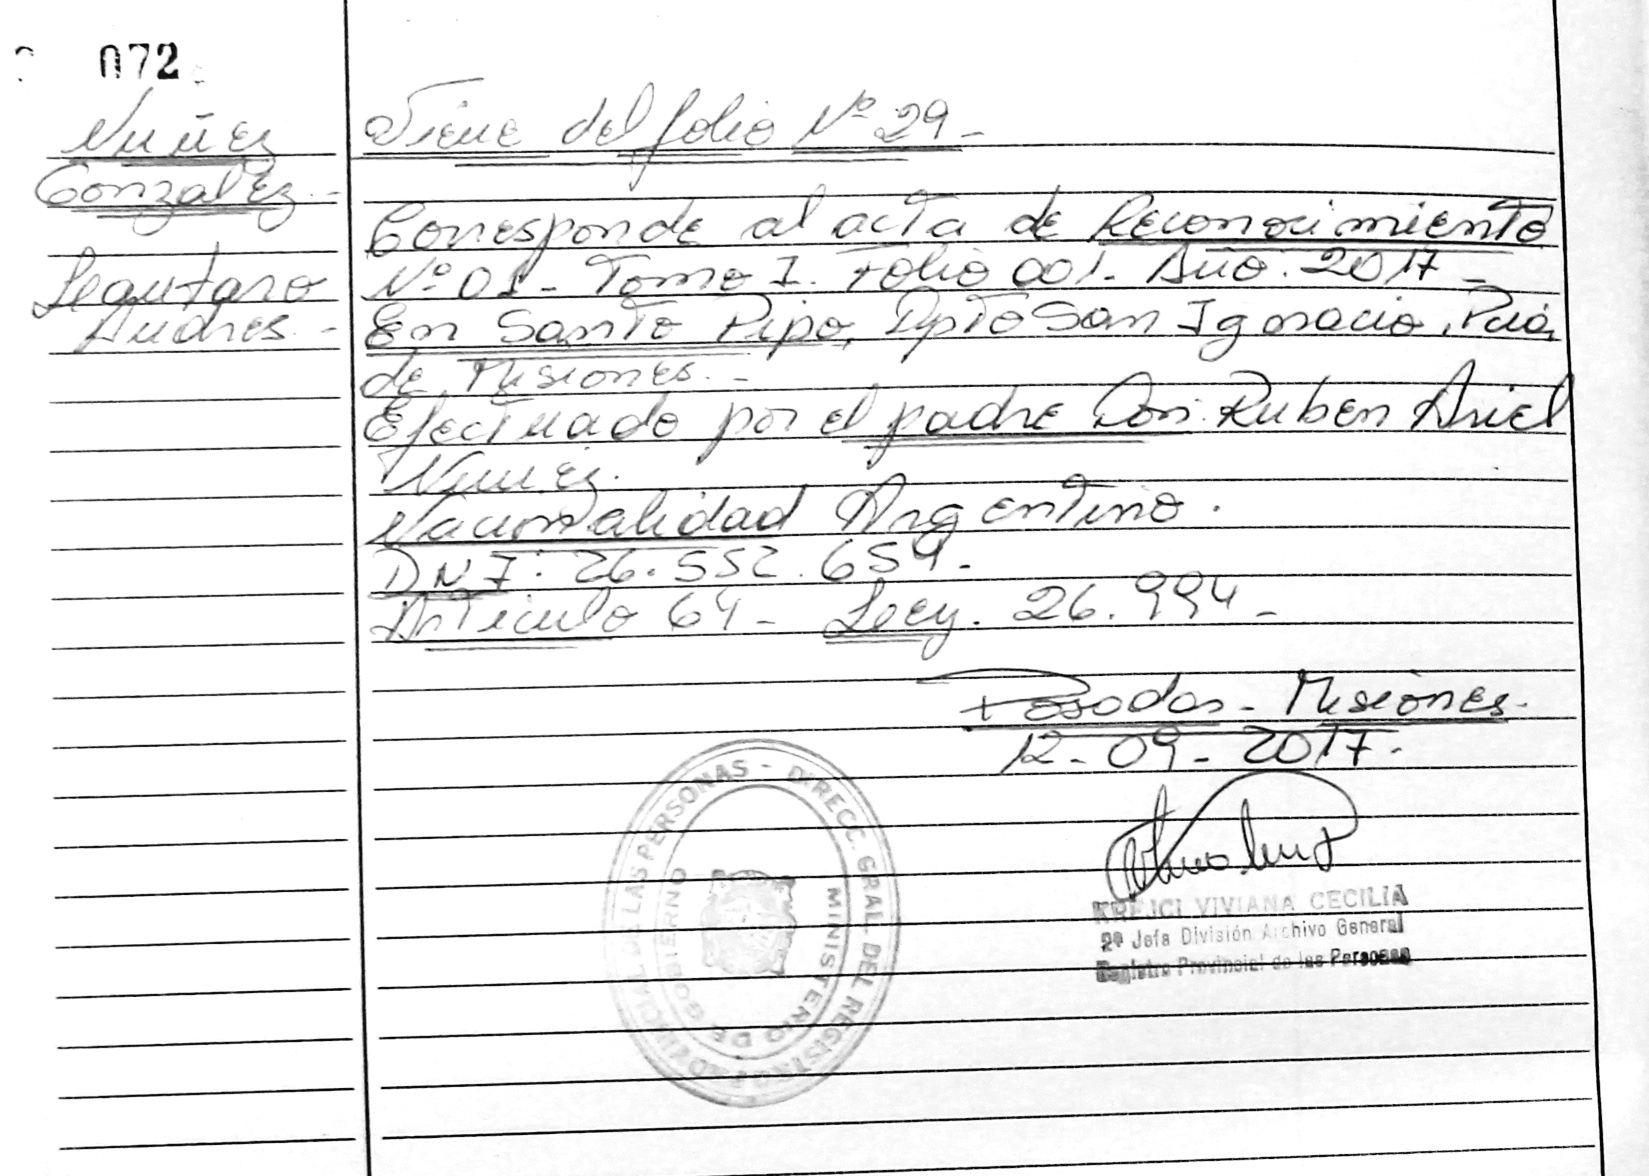 072
Nuñez
Gonzalez.-
Leautaro
Andres.-
Viene del folio Nº 29-
Corresponde al acta de Reconocimiento
Nº 01- Tomo I. Folio 001- Año: 2017-
En Santo Pipo, Dpto San Ignacio, Pcia,
de Misiones.-
Efectuado por el padre Don: Ruben Ariel
Nuñez.
Nacionalidad Argentino.
DNI: 26.552.654.
Articulo 64- Ley. 26.994-
Posadas- Misiones.
12-09-2017.
KREJCI VIVIANA CECILIA
2º Jefa División Archivo General
Registro Provincial de las Personas
DIRECC. GRAL. DEL REGISTRO PROVINCIAL DE LAS PERSONAS -
MINISTERIO DE GOBIERNO